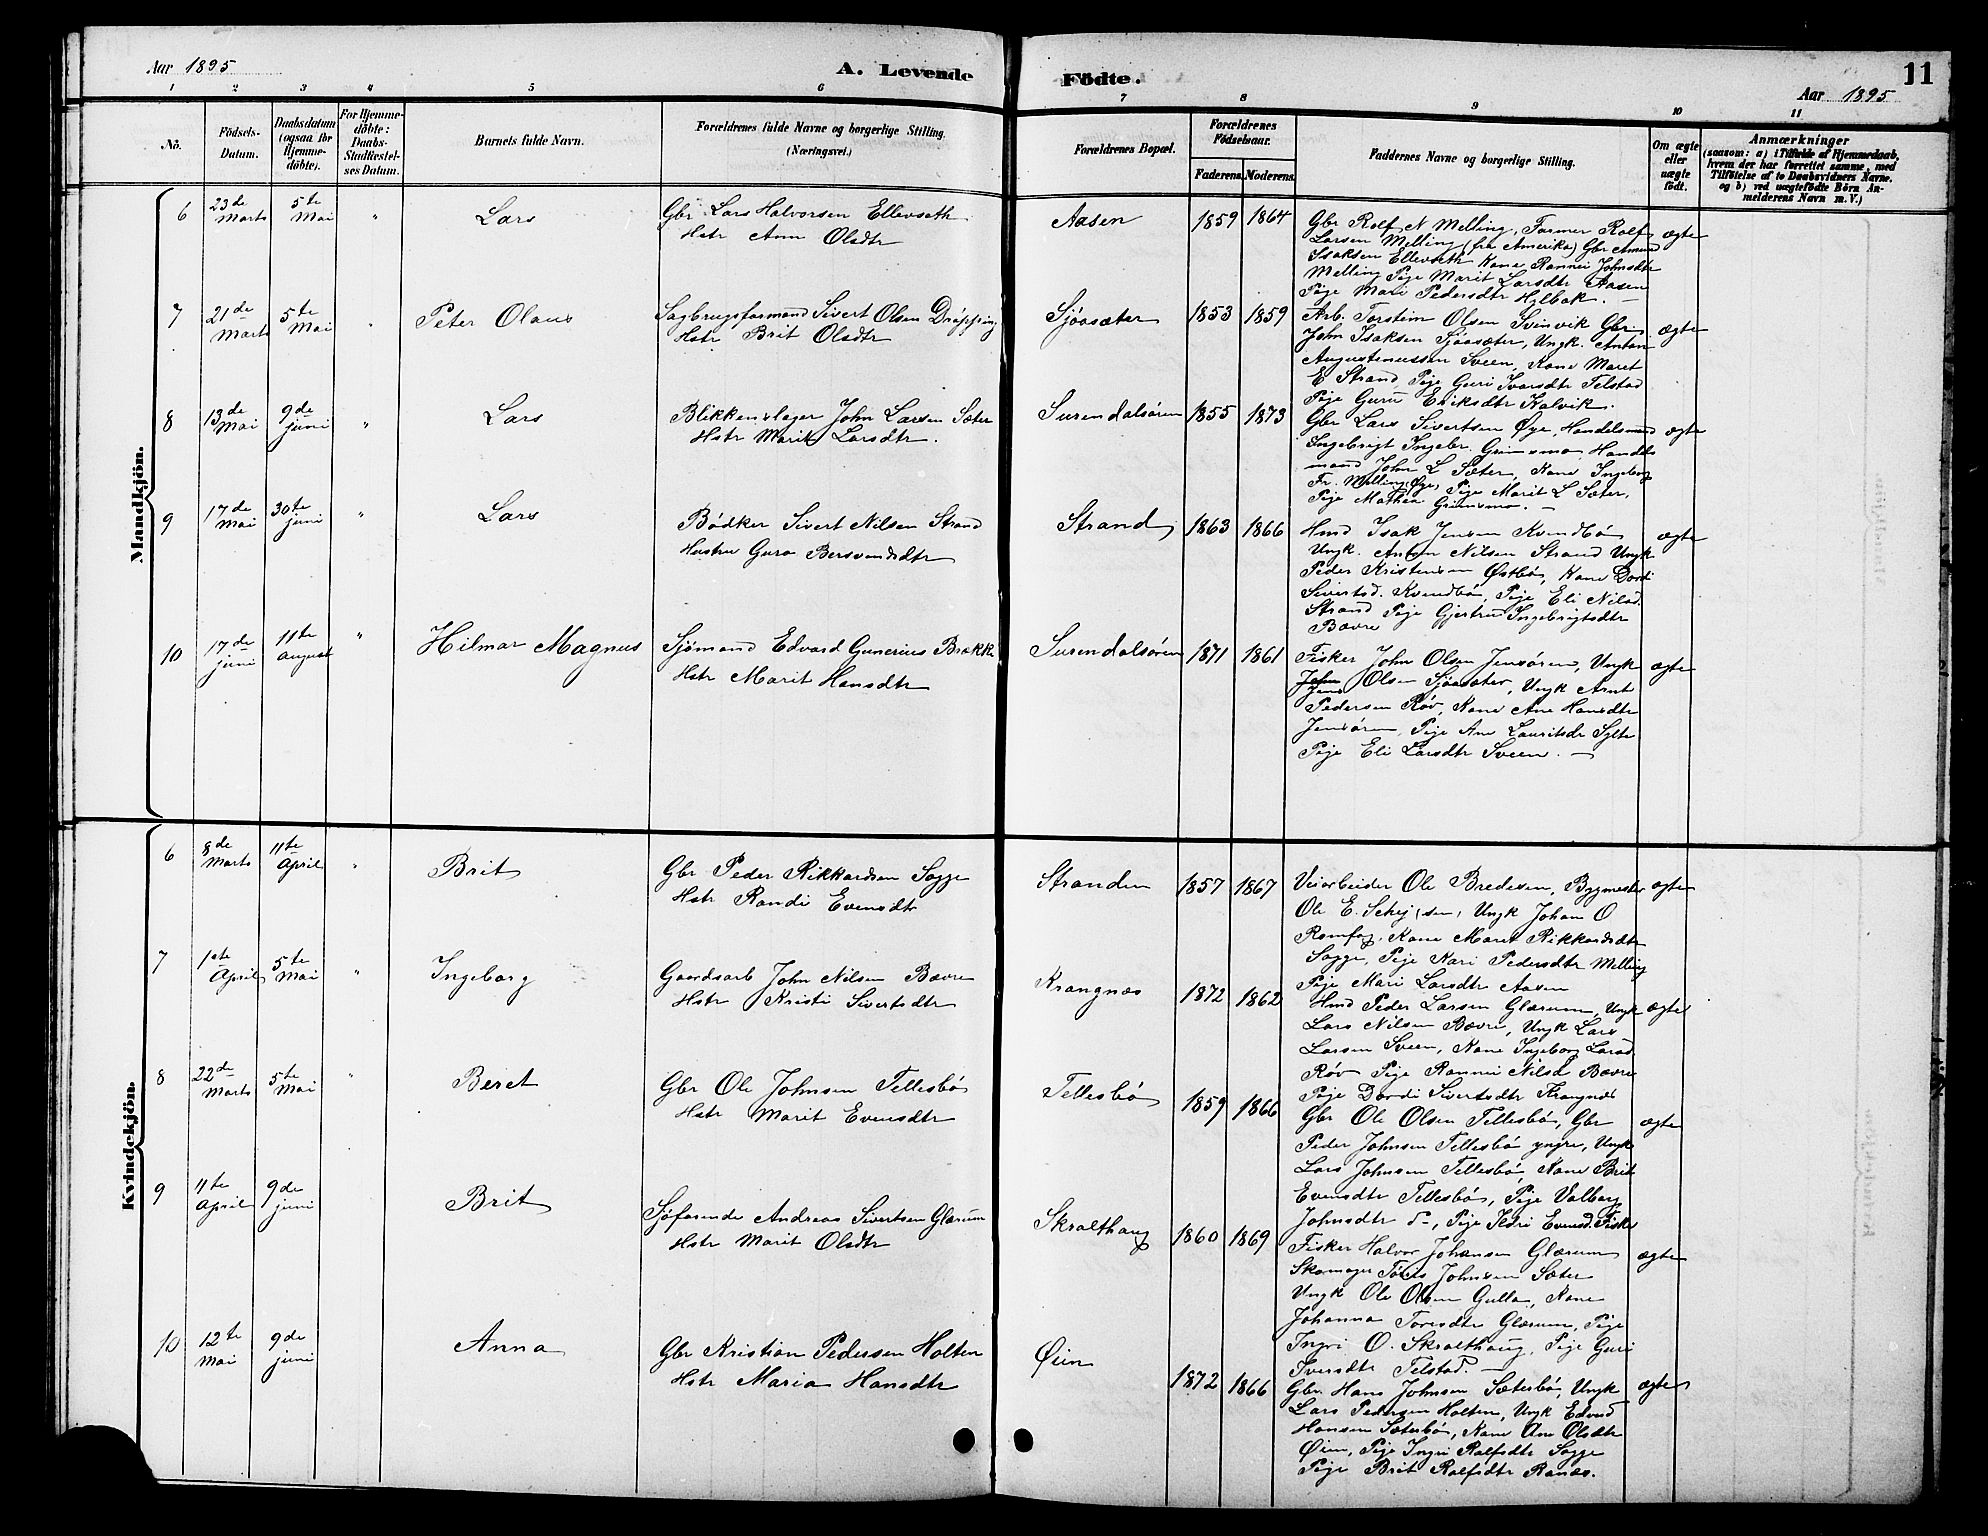 Aar 1895
A. Levende
Födte.
11
Aar 1895
1 2 3 4 5 6 7 8 9 10 11
No.
Födsels-
Datum.
Daabsdatum
(ogsaa for
Hjemme-
döbte).
For Hjemme-
döbte:
Daabs-
Stadfæstel-
ses Datum.
Barnets fulde Navn.
Forældrenes fulde Navne og borgerlige Stilling.
(Næringsvei.)
Forældrenes Bopæl.
Forældrenes
Födselsaar.
Faderens. Moderens.
Faddernes Navne og borgerlige Stilling.
Om ægte
eller
uægte
født.
Anmærkninger
(saasom: a) i Tilfælde af Hjemmedaab,
hvem der har forrettet samme, med
Tilföielse af to Daabsvidners Navne,
og b) ved uægtefödte Börn An-
melderens Navn m. V.)
Mandkjön.
6
23de
Marts
5te
Mai
"
Lars
Gbr Lars Halvorsen Ellevseth
Hstr Ann Olsdtr
Aasen
1859 1864
Gbr Rolf N Melling, Farmer Rolf
Larsen Melling (fra Amerika) Gbr Amund
Isaksen Ellevseth Kone Rannei Johnsdtr
Melling Pige Marit Larsdtr Aasen
Pige Mari Pedersdtr Hylbak. —
ægte
7
21de
Marts
5te
Mai
"
Peter Olaus
Sagbrugsformand Sivert Olsen Dröpping
Hstr Brit Olsdtr
Sjöasæter
1853 1859
Arb. Torstein Olsen Svinvik Gbr
John Isaksen Sjöasæter, Ungk. Anton
Augustinussen Sveen, Kone Maret
E Strand, Pige Guri Ivarsdtr Telstad
Pige Guru Eriksdtr Kalvik.
ægte
8
13de
Mai
9de
juni
"
Lars
Blikkenslager John Larsen Sæter
Hstr Marit Larsdtr.
Surendalsören
1855 1873
Gbr Lars Sivertsen Øye, Handelsmand
Ingebrigt Ingebr. Grimsmo, Handels
mand John L Sæter, Kone Ingeborg
Fr. Melling Øye, Pige Marit L Sæter,
Pige Mathea Grimsmo. —
ægte
9
17de
Mai
30te
juni
"
Lars
Bödker Sivert Nilsen Strand
Hustru Guro Bersvendsdtr
Strand
1863 1866
Hmd Isak Jensen Kvendbö
Ungk. Anton Nilsen Strand Ungk
Peder Kristensen Østbö, Kone Dordi
Sivertsd. Kvendbö, Pige Eli Nilsd.
Strand Pige Gjertru Ingebrigtsdtr
Bævre
ægte
10
17de
juni
11te
august
"
Hilmar Magnus
Sjömand Edvard Gunerius Brække
Hstr Marit Hansdtr
Surendalsören
1871 1861
Fisker John Olsen Jensören, Ungk
John
Jens Olsen Sjöasæter, Ungk Arnt
Pedersen Röv, Kone Ane Hansdtr
Jensören, Pige Ane Lauritsdr Sylte
Pige Eli Larsdtr Sveen. —
ægte
Kvindekjön.
6
8de
Marts
11te
April
"
Brit
Gbr Peder Rikkardsen Sogge
Hstr Randi Evensdtr
Stranden
1857 1867
Veiarbeider Ole Bredesen, Bygmester
Ole E. , Ungk Johan O
Romfog, Kone Maret Rikkardsdtr
Sogge, Pige Kari Pedersdtr Melling
Pige Mari Larsdtr Aasen
ægte
7
1ste
April
5te
Mai
"
Ingeborg
Gaardsarb John Nilsen Bævre
Hstr Kristi Sivertsdtr
Krangnæs
1872 1862
Hmd Peder Larsen Glærum, Ungk
Lars Nilsen Bævre, Ungk Lars
Larsen Sveen, Kone Ingeborg Larsd.
Röv Pige Rannei Nilsd Bævre
Pige Dordi Sivertsdtr Krangnæs
ægte
8
22de
Marts
5te
Mai
"
Beret
Gbr Ole Johnsen Tellesbö
Hstr Marit Evensdtr
Tellesbö
1859 1866
Gbr Ole Olsen Tellesbö, Gbr
Peder Johnsen Tellesbö yngre, Ungk
Lars Johnsen Tellesbö Kone Brit
Evensdtr Tellesbö, Pige Valborg
Johnsdtr d—, Pige Ildri Evensd. Fiske
ægte
9
11te
April
9de
juni
Brit
Sjöfarende Andreas Sivertsen Glærum
Hstr Marit Olsdtr
Skralthaug
1860 1869
Fisker Halvor Johansen Glærum
Skomager Töris Johnsen Sæter
Ungk Ole Olsen Gulla, Kone
Johanna Toresdtr Glærum, Pige
Ingri O. Skralthaug, Pige Guri
Iversdtr Telstad. —
ægte
10
12te
Mai
9de
juni
Anna
Gbr Kristian Pedersen Holten
Hstr Maria Hansdtr
Øien
1872 1866
Gbr Hans Johnsen Sæterbö, Ungk
Lars Pedersen Holten, Ungk Edvard
Hansen Sæterbö, Kone Ane Olsdtr
Øien, Pige Ingri Rolfsdtr Sogge
Pige Brit Rolfsdtr Ranæs.
ægte